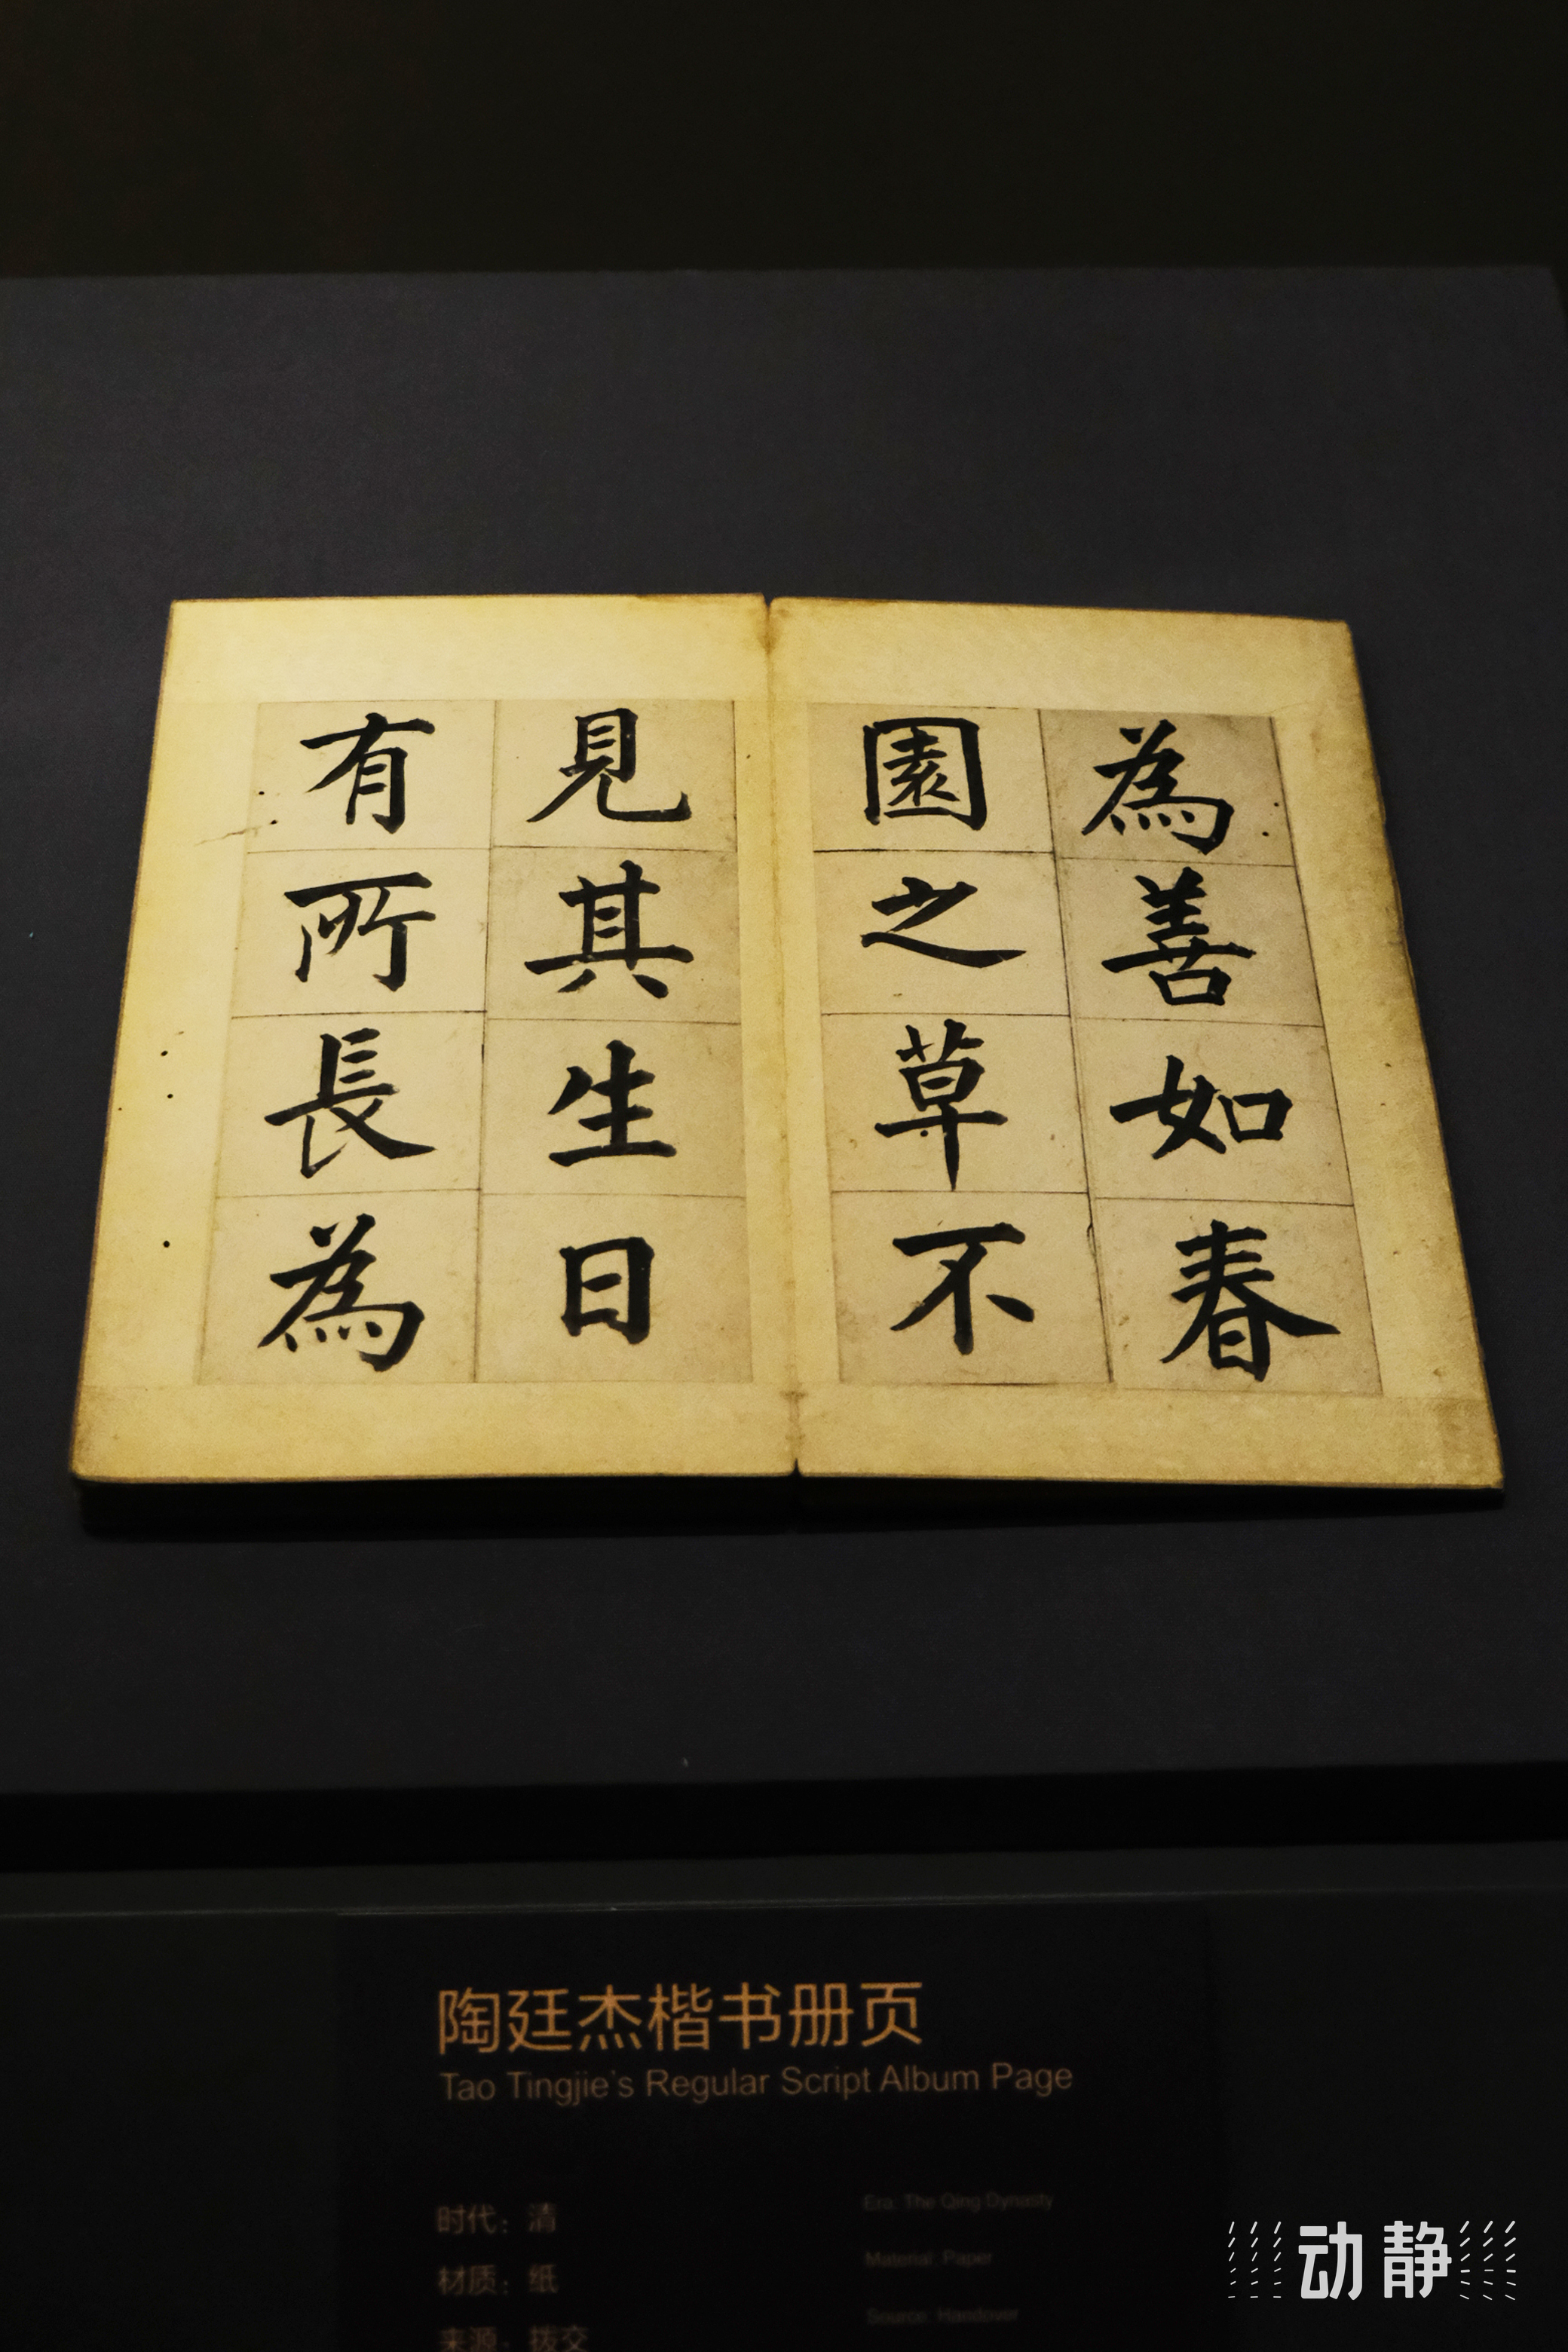 為善如春
園之草不
見其生日
有所長為
陶廷杰楷书册页
Tao Tingjie's Regular Script Album Page
时代：清
材质：纸
来源：拨交
Era: The Qing Dynasty
Material: Paper
Source: Handover
动静